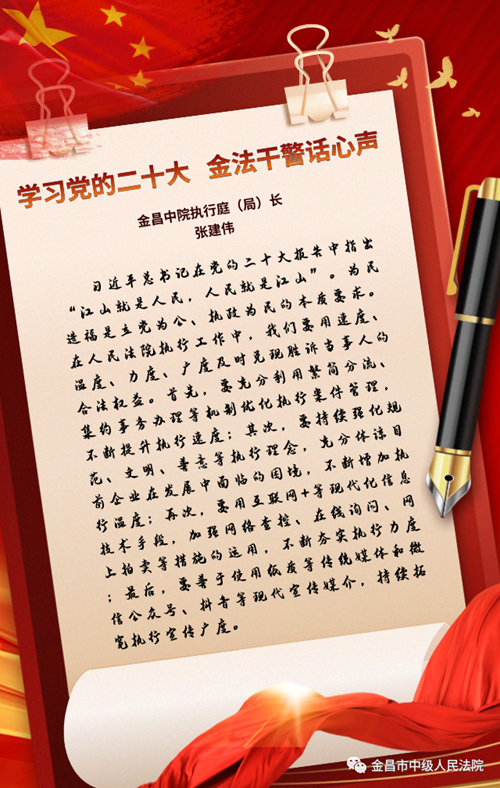 学习党的二十大 金法干警话心声
金昌中院执行庭（局）长
张建伟
习近平总书记在党的二十大报告中指出
“江山就是人民，人民就是江山”。为民
造福是立党为公、执政为民的本质要求。
在人民法院执行工作中，我们要用速度、
温度、力度、广度及时兑现胜诉当事人的
合法权益。首先，要充分利用繁简分流、
集约事务办理等机制优化执行案件管理，
不断提升执行速度；其次，要持续强化规
范、文明、善意等执行理念，充分体谅目
前企业在发展中面临的困境，不断增加执
行温度；再次，要用互联网+等现代化信息
技术手段，加强网络查控、在线询问、网
上拍卖等措施的运用，不断夯实执行力度
；最后，要善于使用纸质等传统媒体和微
信公众号、抖音等现代宣传媒介，持续拓
宽执行宣传广度。
金昌市中级人民法院